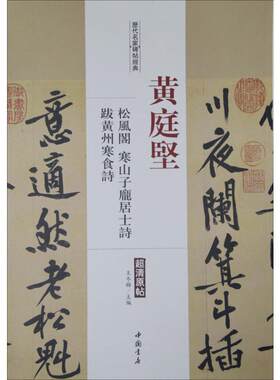 歷代名家碑帖經典
黄庭堅
松風閣 寒山子龐居士詩
跋黄州寒食詩
超清原帖
王冬梅 主編
中國書店
川夜闌箕斗插
意適然老松魁